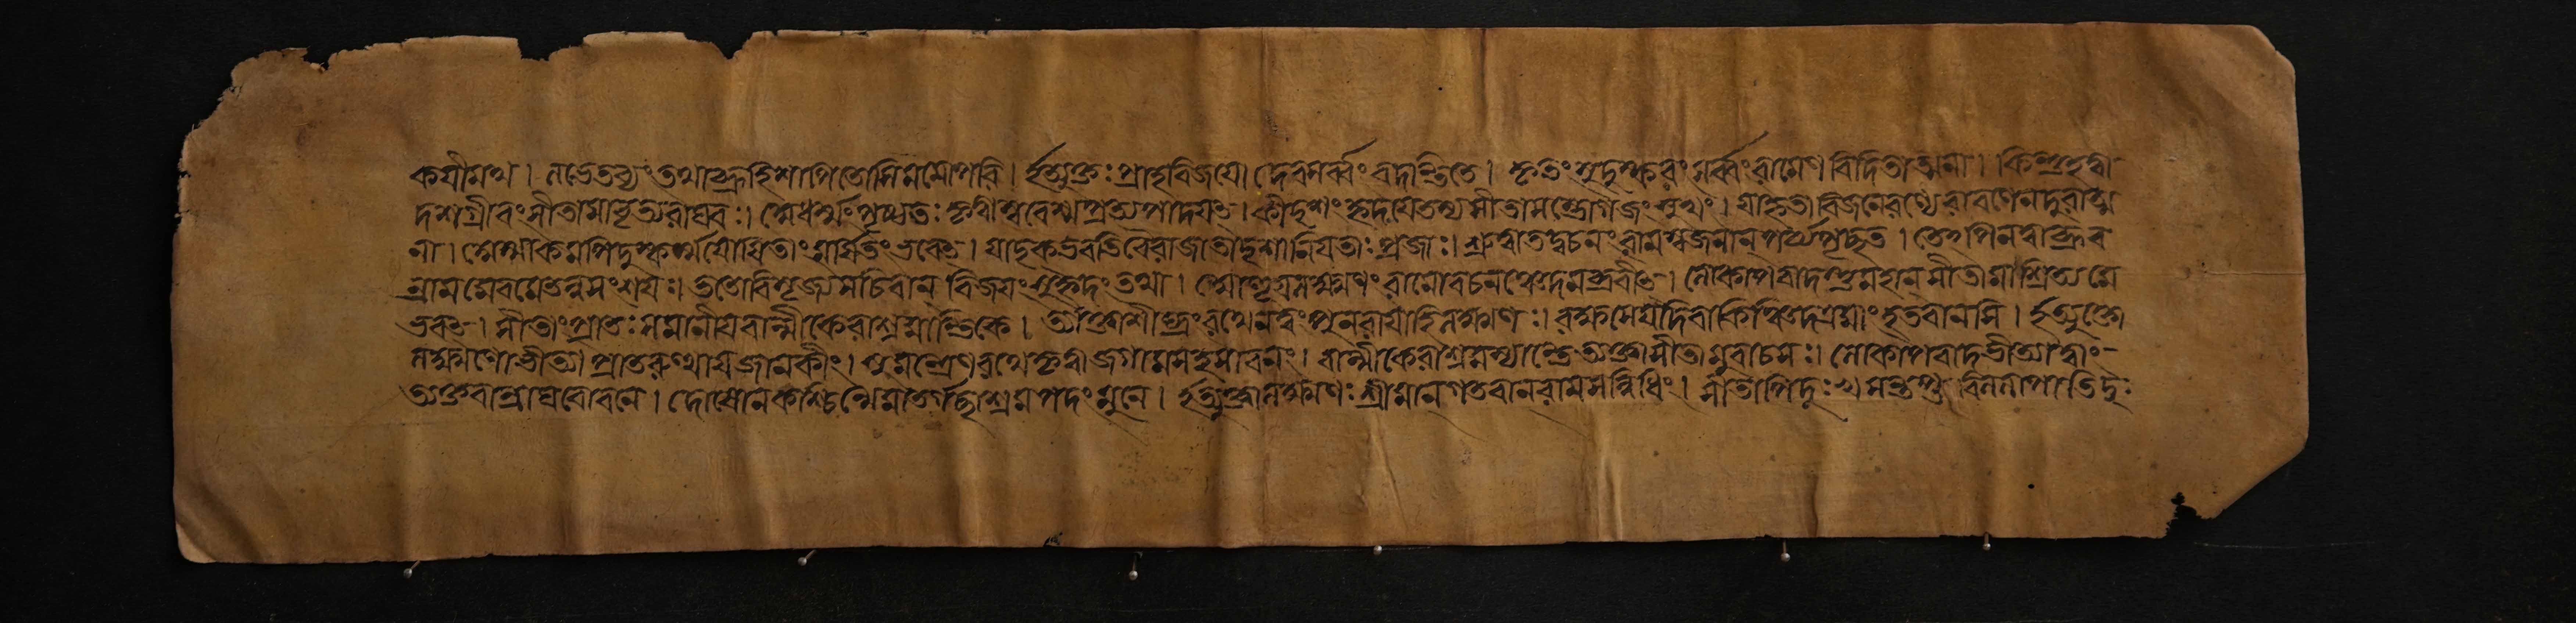 কযীমথ । নভেতব্যং তথাব্রূহি শাপিতোসি মমোপরি । ইত্যুক্তঃ প্রাহ বিজযো দেব সর্ব্বং বদন্তি তে । কৃতং সুদুষ্করং সর্ব্বং রামেণ বিদিতাত্মনা । কিন্তু হত্বা
দশগ্রীবং সীতামাহৃত্য রাঘবঃ । অমর্ষং পৃষ্ঠতঃ কৃত্বা স্ববেশ্ম প্রত্যপাদযৎ । কীদৃশং হৃদযে তস্য সীতাসম্ভোগজং সুখং । যা হৃতা বিজনেরণ্যে রাবণেন দুরাত্ম
না । অস্মাকমপি দুষ্কর্ম্ম যোষিতাং মর্ষিতং ভবেৎ । যাদৃক ভবতি বৈ রাজা তাদৃশা নিযতাঃ প্রজাঃ । শ্রুত্বা তদ্বচনং রাম স্বজনান্ পর্য্যপৃচ্ছত । তেপি নত্বাব্রুব
ন্রামমেবমেতন্নসংশযঃ । ততো বিসৃজ্য সচিবান্ বিজযং সুহৃদং তথা । আহূয লক্ষ্মণং রামো বচনঞ্চেদমব্রবীৎ । লোকাপবাদস্তু মহান্ সীতামাশ্রিত্য মে
ভবৎ । সীতাং প্রাতঃ সমানীয বাল্মীকেরাশ্রমান্তিকে । ত্যক্ত্বা শীঘ্রং রথেন ত্বং পুনরাযাহি লক্ষ্মণঃ । বক্ষ্যসে যদি বা কিঞ্চিত্তদা মাং হতবানসি । ইত্যুক্তো
লক্ষ্মণো ভীত্যা প্রাতরুত্থায জানকীং । সুমন্ত্রেণ রথে কৃত্বা জগাম সহসা বনং । বাল্মীকেরাশ্রমস্যান্তে ত্যক্ত্বা সীতামুবাচ সঃ । লোকাপবাদভীত্যা ত্বাং-
ত্যক্তবান্রাঘবো বনে । দোষো ন কশ্চিন্মে মাতর্গচ্ছাশ্রমপদং মুনে । ইত্যুক্ত্বা লক্ষ্মণঃ শ্রীমান্ গতবান রামসন্নিধিং । সীতাপি দুঃখসন্তপ্তা বিললাপাতিদুঃ